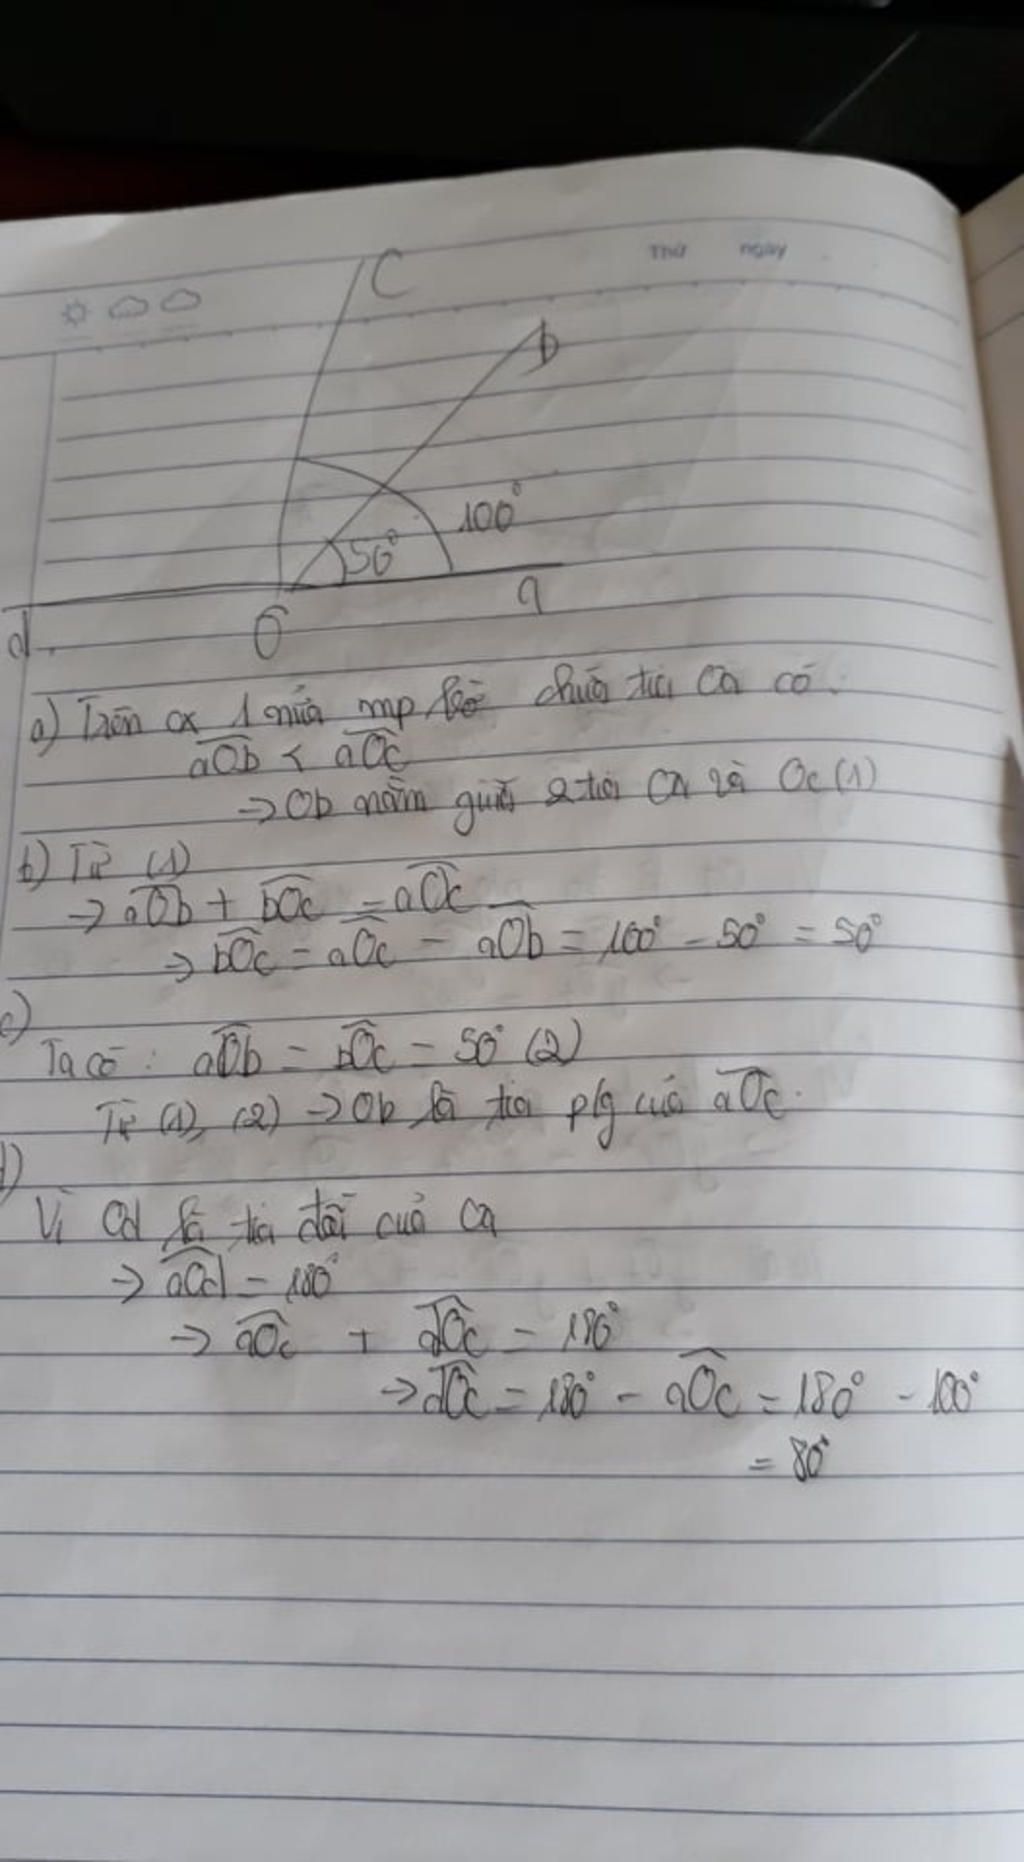 Thứ ngày
C
b
100°
50°
d
O
a
a) Trên cx 1 nửa mp bờ chứa tia Oa có:
aOb < aOc
→ Ob nằm giữa 2 tia Oa và Oc (1)
b) Từ (1)
→ aOb + bOc = aOc
→ bOc = aOc - aOb = 100° - 50° = 50°
c)
Ta có: aOb = bOc = 50° (2)
Từ (1), (2) → Ob là tia p/g của aOc.
d)
Vì Od là tia đối của Oa
→ aOd = 180°
→ aOc + dOc = 180°
→ dOc = 180° - aOc = 180° - 100°
= 80°